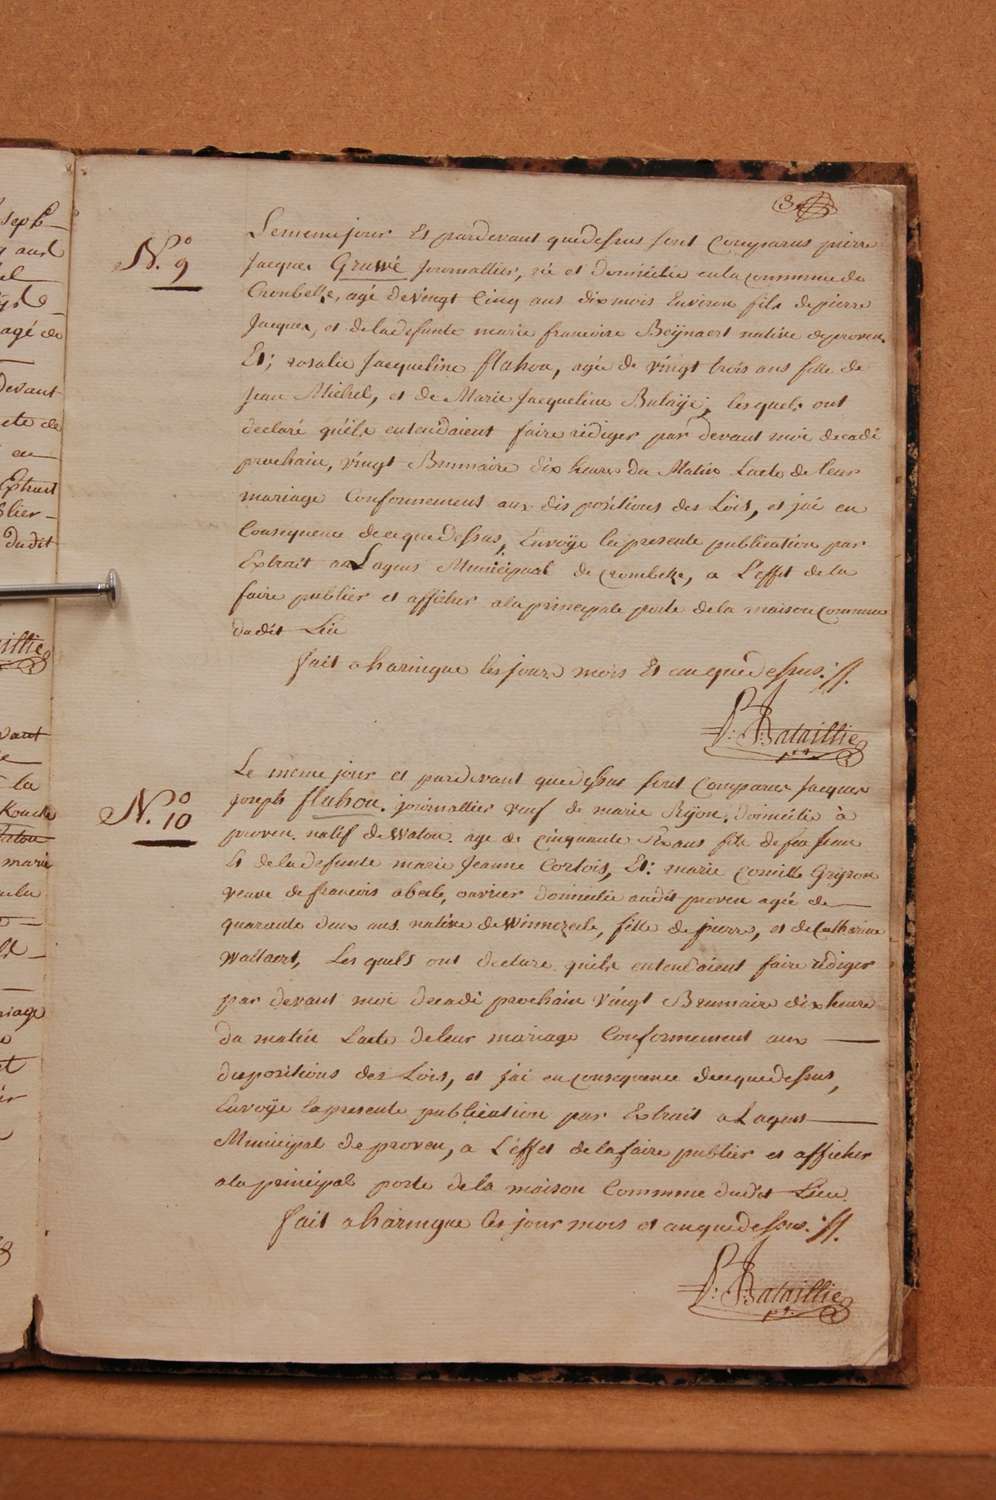 3
N.o 9
Le meme jour Et pardevant que dessus sont Comparus pierre
Jacques Gruwé journallier, né et domicilié en la commune de
Crombelke, agé de vingt Cinq ans dix mois Environ fils de pierre
Jacques, et de la defunte marie francoise Beijnaert native de proven.
Et; rosalie Jacqueline flahou, agée de vingt trois ans fille de
Jean Michel, et de Marie Jacqueline Bataije, lesquels ont
declaré qu'ils entendaient faire rédiger par devant moi decadi
prochain, vingt Brumaire dix heures du Matin Lacte de leur
mariage Conformement aux dispositions des Lois, et jai en
Consequence de ce que dessus, Envoÿe la presente publication par
Extrait au Lagent Municipaal de crombeke, a L'effet de la
faire publier et afficher a la principale porte de la maison commune
dudit Lieu
fait a haringue les jour mois Et an que dessus.//.
P: J: Bataillie
N.o 10
Le même jour et pardevant que dessus sont comparus Jacques
joseph flahou. journallier veuf de marie Rijon, domicilié à
proven, natif de watou. age de cinquante ans fils de feu Jean
Et de la defunte marie Jeanne Cortois, Et: marie comille Grijson
veuve de francois abeele, ouvrier domicilié audit proven agée de
quarante deux ans. native de Winnezeele, fille de pierre, et de Catherine
Wallaert, Les quels ont declare quils entendaient faire rédiger
par devant moi decadi prochain vingt Brumaire dix heure
du matin Lacte de leur mariage Conformement aux
dispositions des Lois, et j'ai en consequence de ce que dessus,
Envoÿe la presente publication par Extrait a Lagent
Municipal de proven, a L'effet de la faire publier et afficher
a la principal porte de la maison Commune dudit Lieu.
fait a haringue les jour mois et an que dessus.//.
P: J: Bataillie